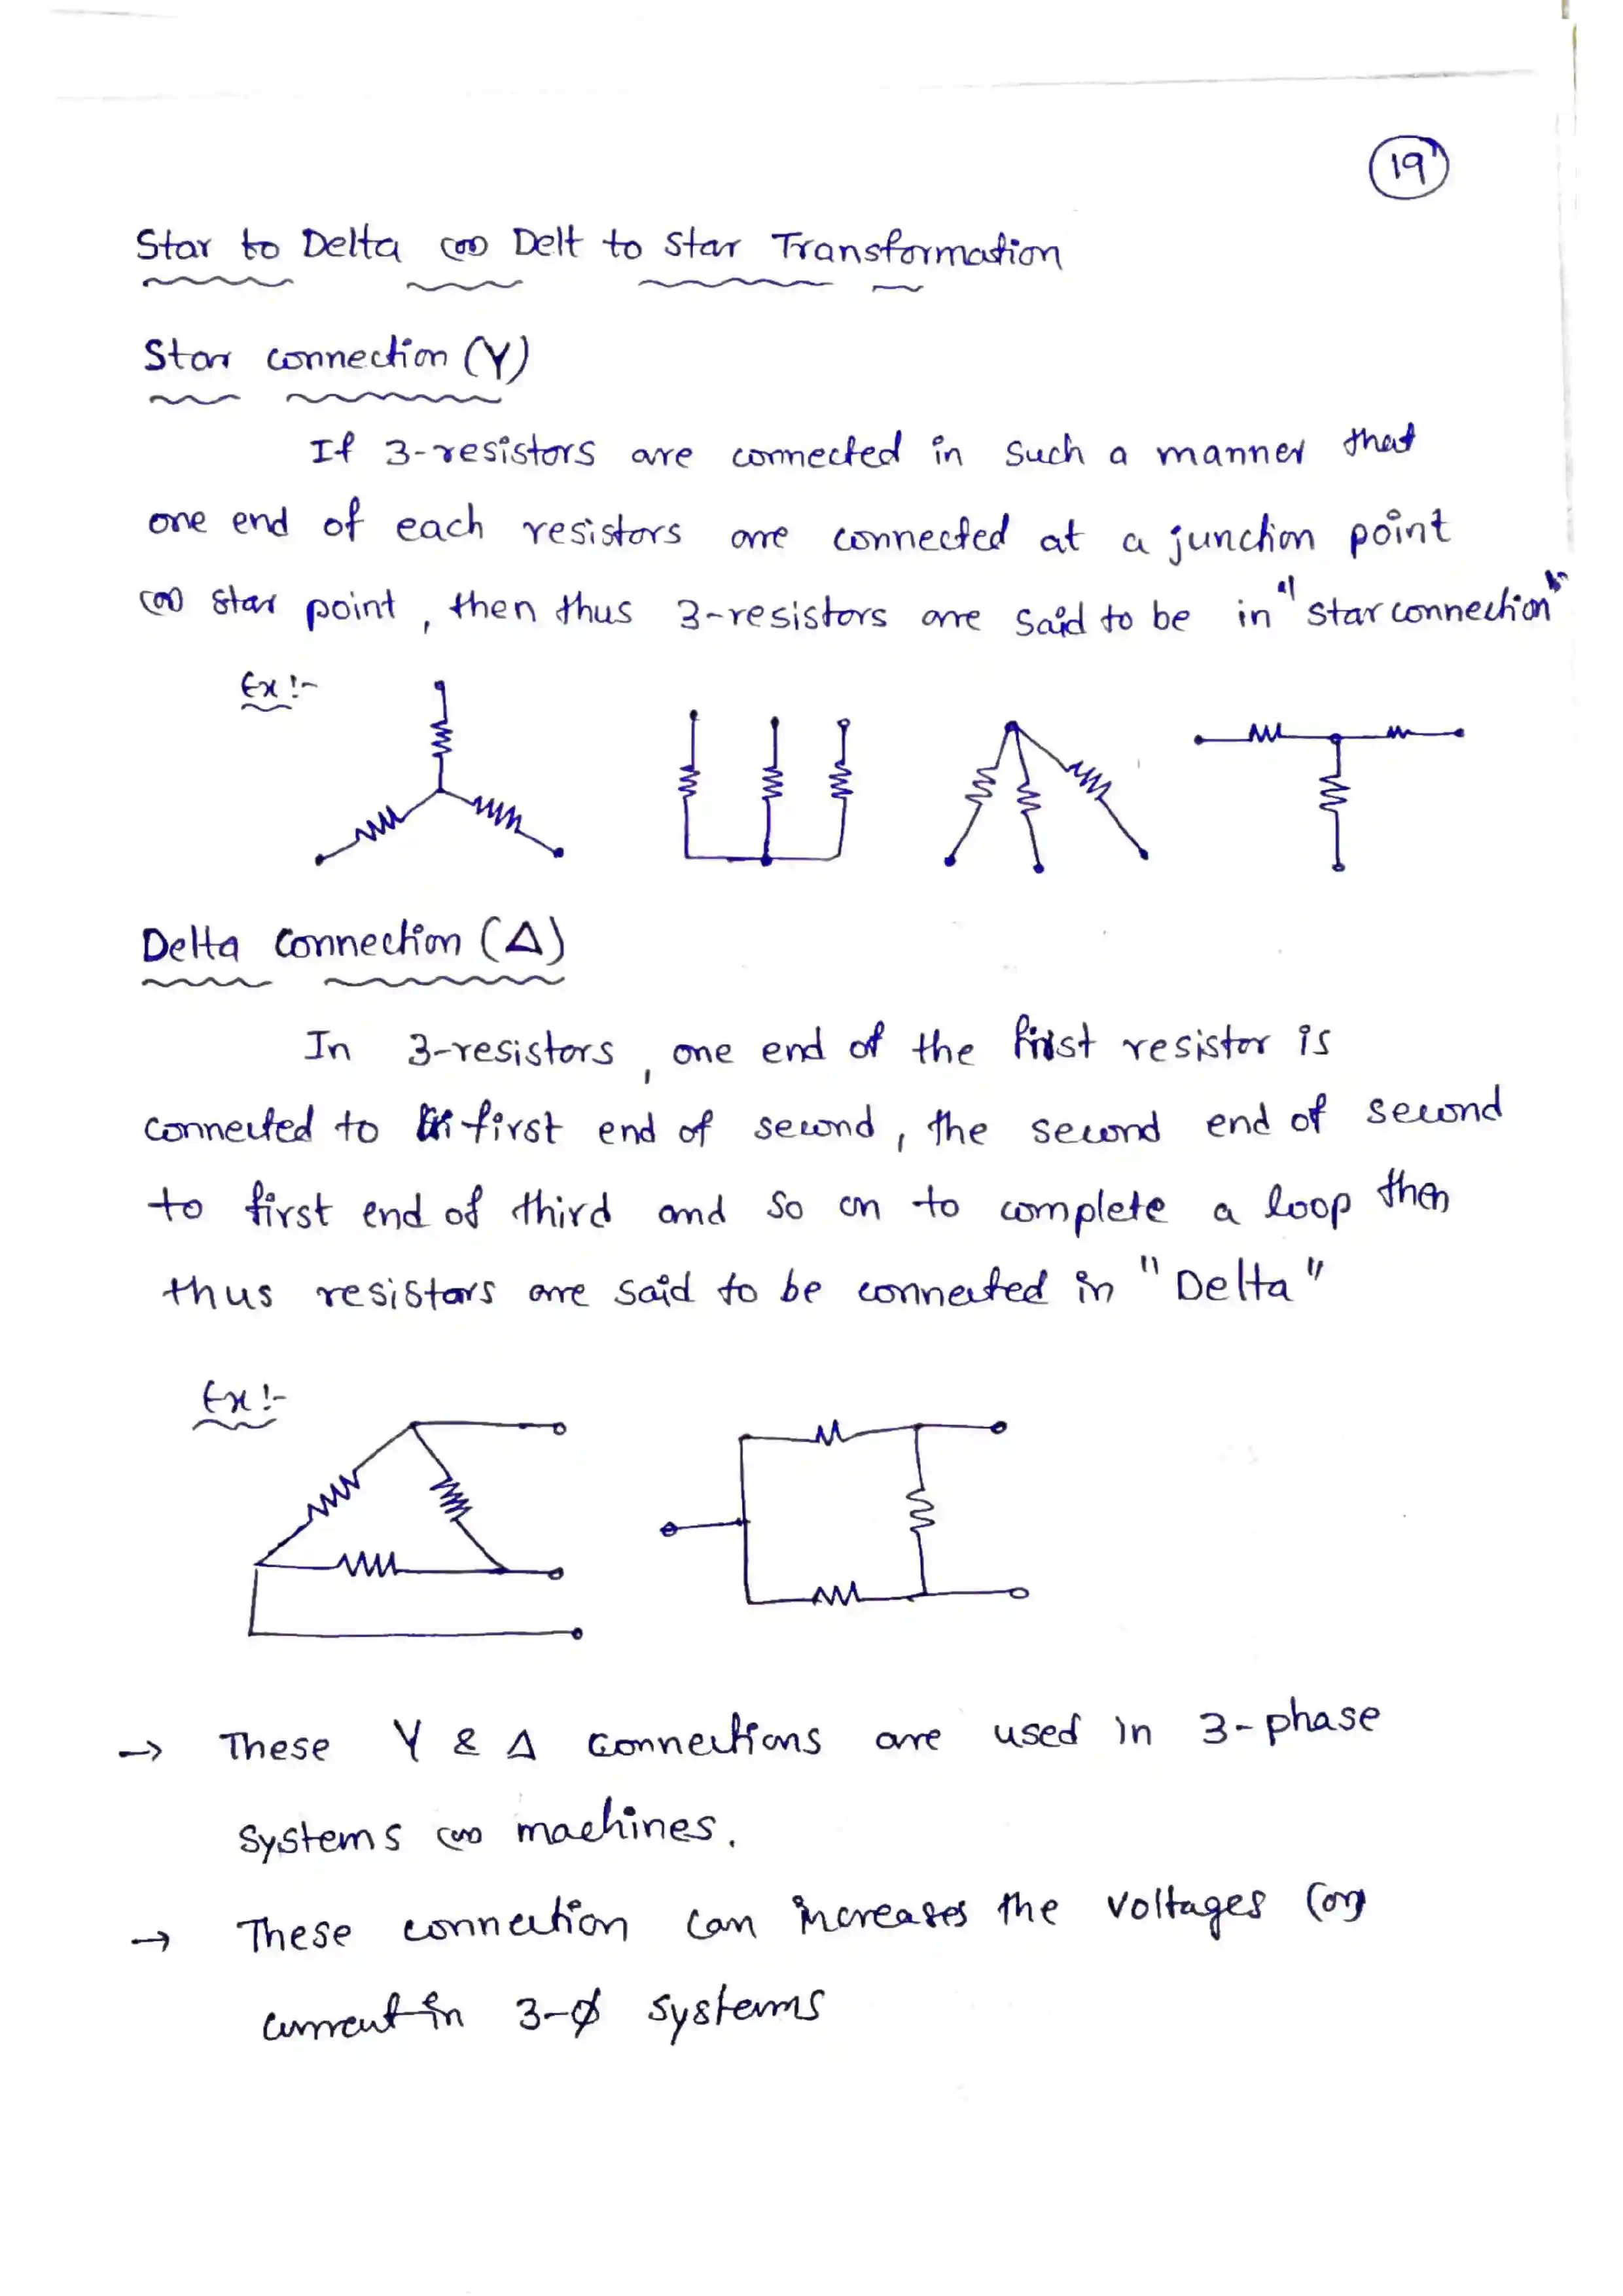 19
Star to Delta (or) Delt to Star Transformation
Star connection (Y)
If 3-resistors are connected in such a manner that
one end of each resistors are connected at a junction point
(or) star point, then thus 3-resistors are said to be in "star connection"
Ex :-
Delta connection (Δ)
In 3-resistors, one end of the first resistor is
connected to first end of second, the second end of second
to first end of third and so on to complete a loop then
thus resistors are said to be connected in "Delta"
Ex :-
→ These Y & Δ connections are used in 3-phase
systems (or) machines.
→ These connection can increases the voltages (or)
current in 3-ϕ systems